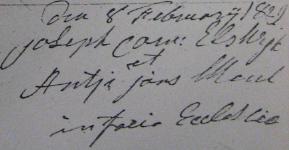 Den 8 February 1829
Joseph Corn: Elswijk
et
Antje Jans Moul
in facie Ecclesiae